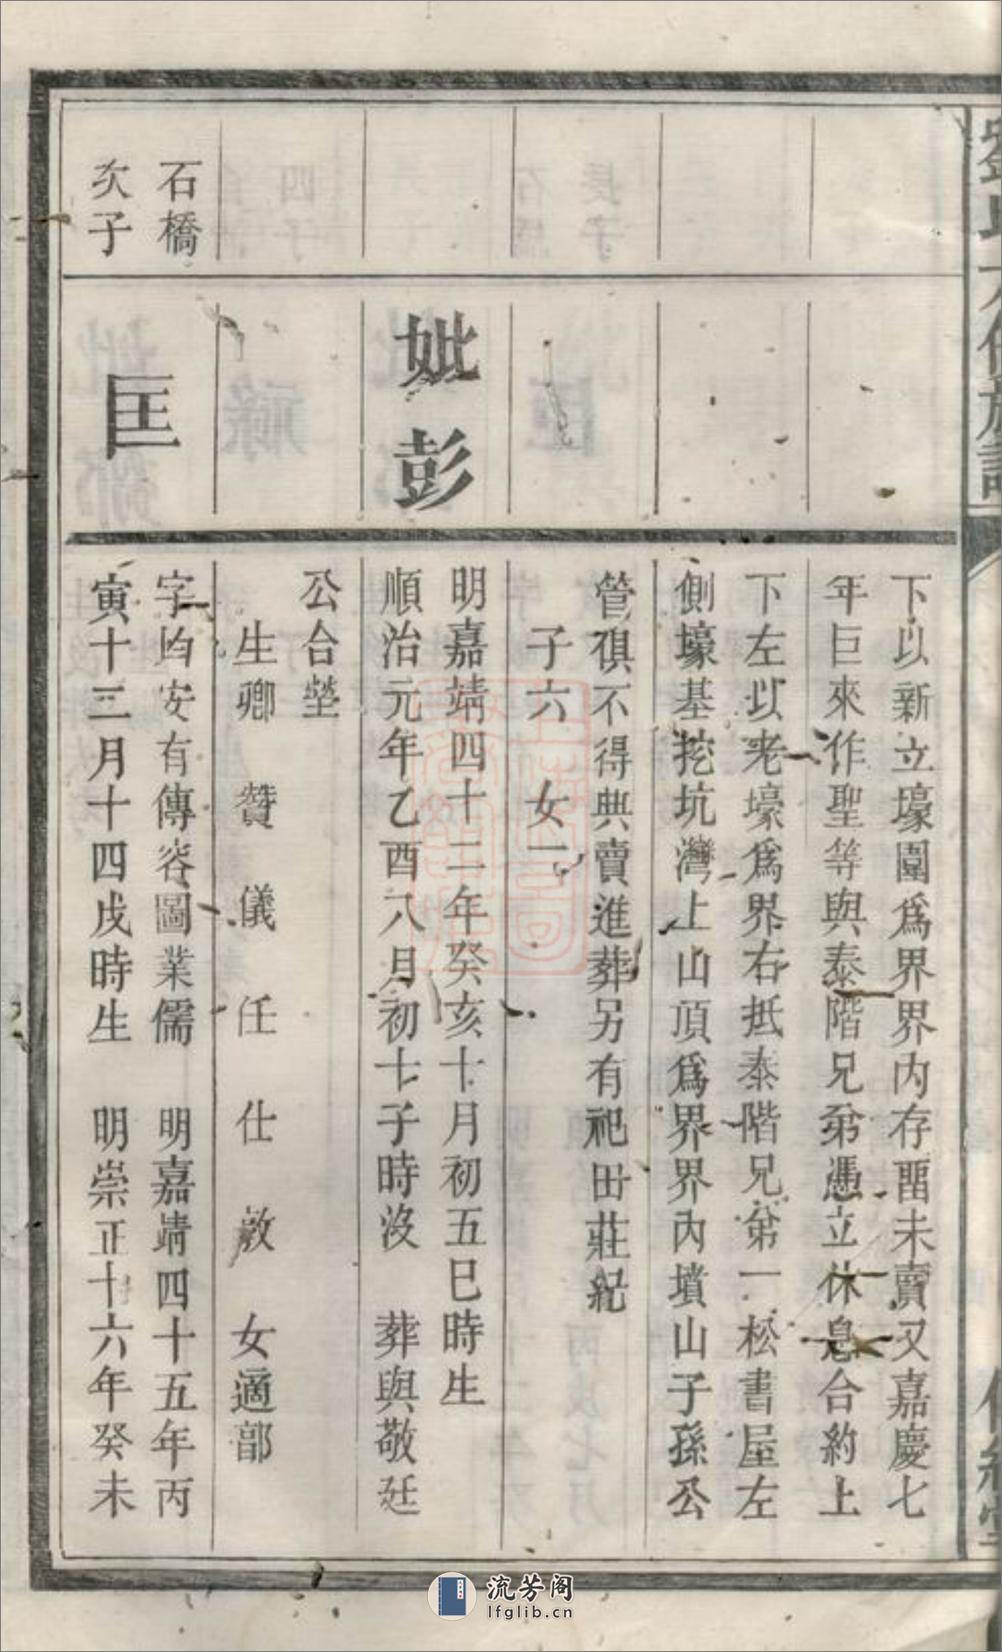 下以新立壕園爲界界内存畱未賣又嘉慶七
年巨來作聖等與泰階兄弟憑立休息合約上
下左以老壕爲界右抵泰階兄弟一松書屋左
側壕基挖坑灣上山頂爲界界內墳山子孫公
管俱不得典賣進葬另有祀田莊紀
子六 女一
妣彭
明嘉靖四十二年癸亥十月初五巳時生
順治元年乙酉八月初十子時沒 葬與敬廷
公合塋
生卿 贊 儀 任 仕 敇 女適部
石橋
次子
匡
字均安有傳容圖業儒 明嘉靖四十五年丙
寅十三月十四戌時生 明崇正十六年癸未
流芳阁
lfglib.cn